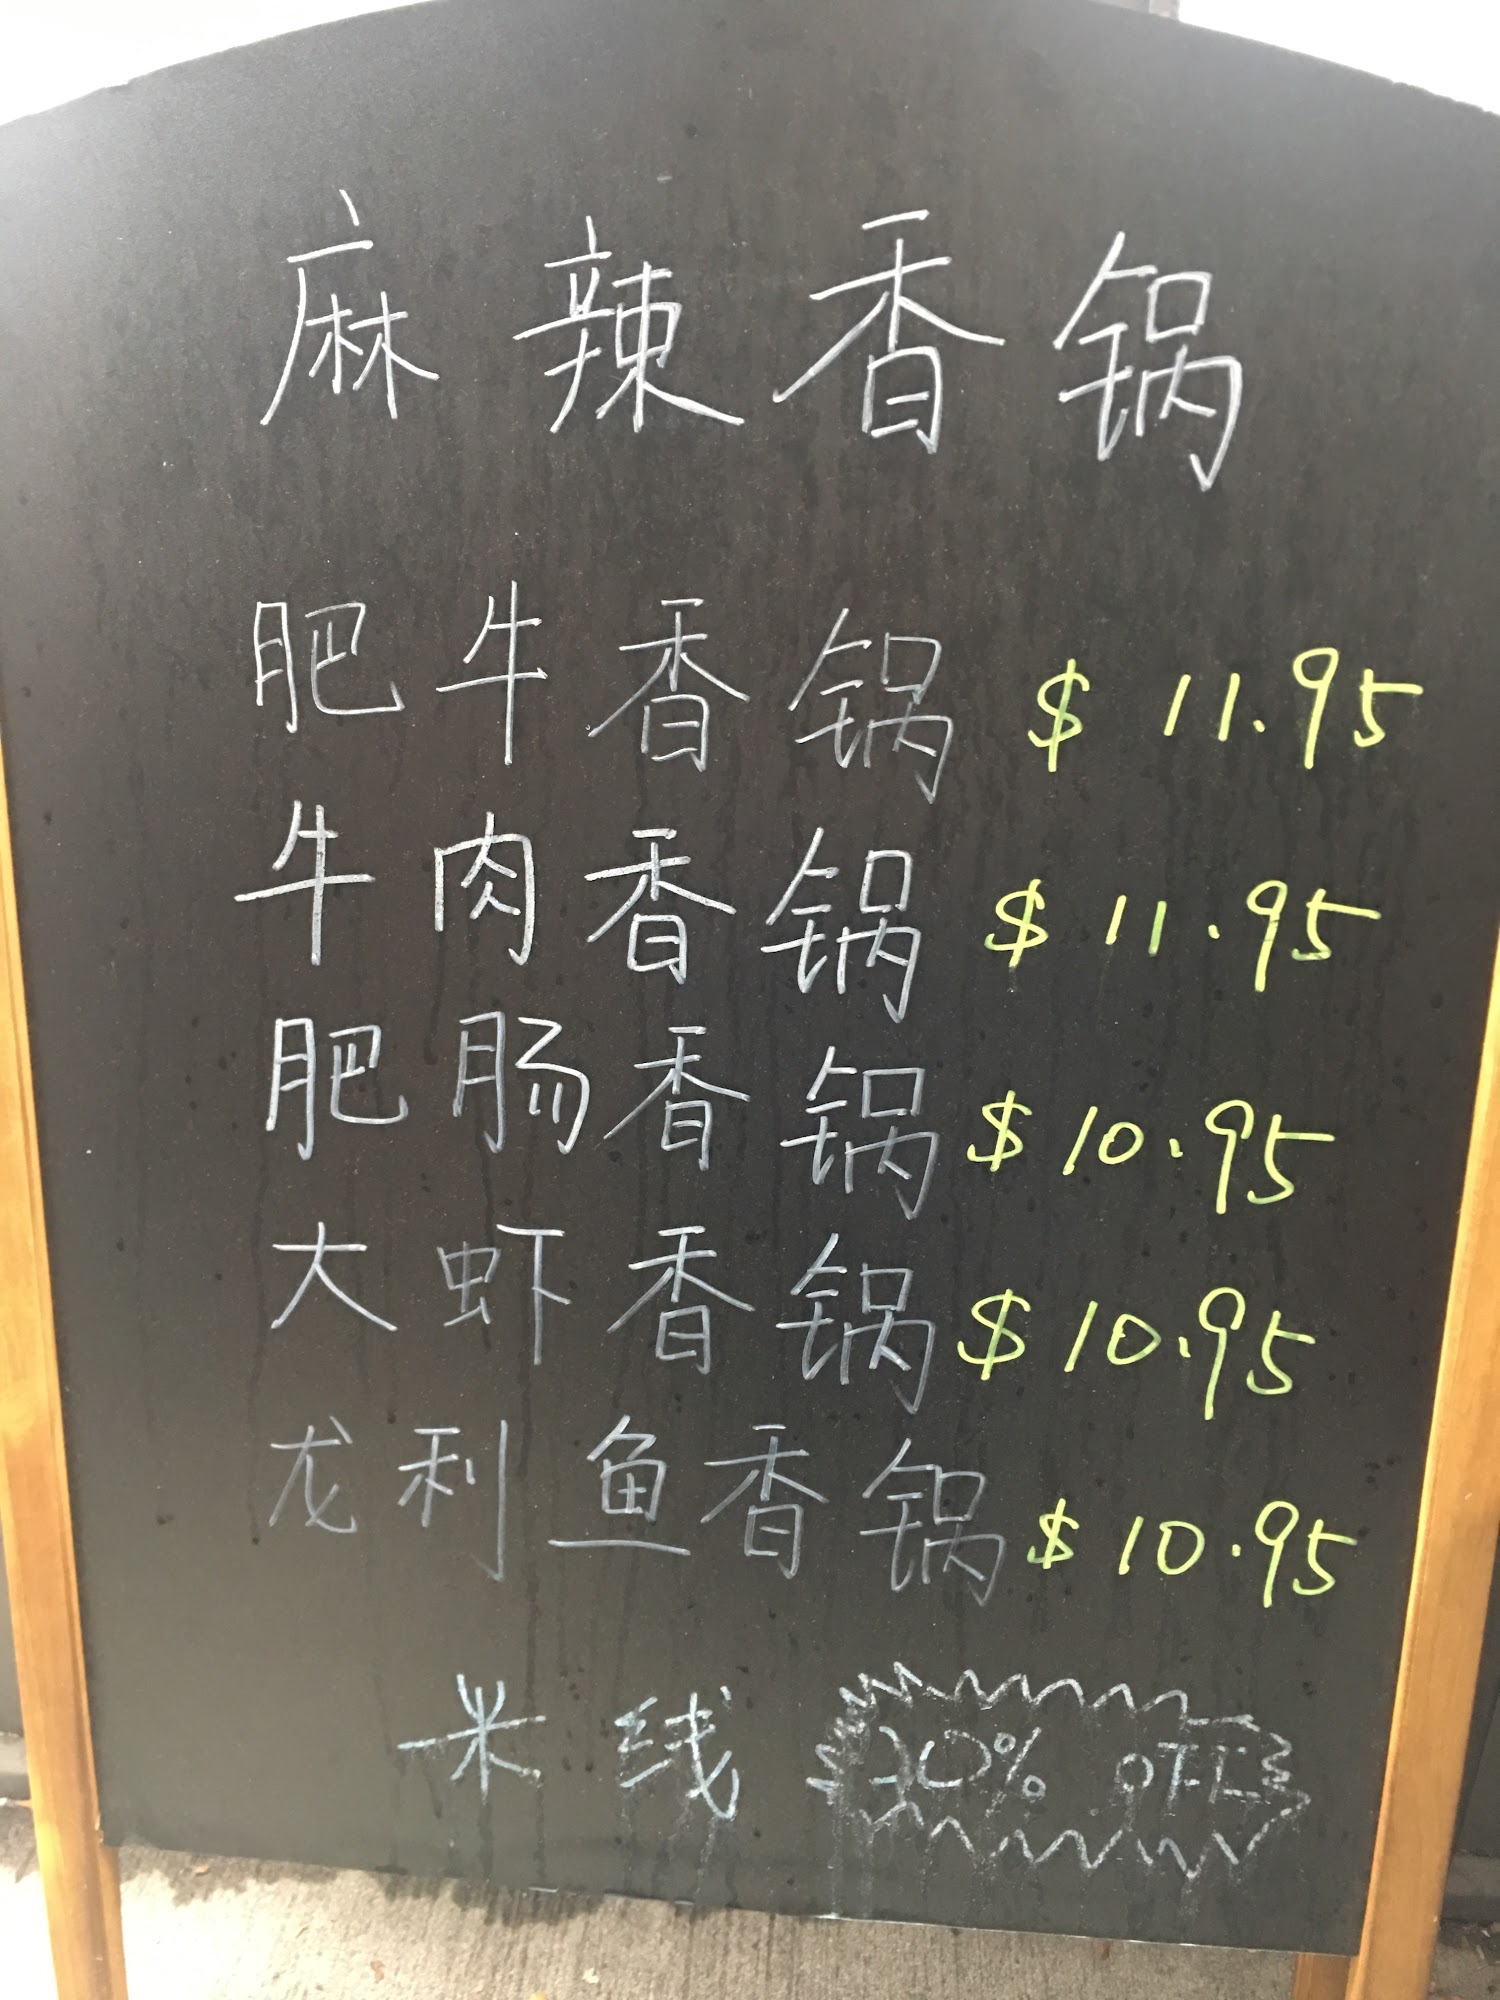 麻辣香锅
肥牛香锅 $ 11.95
牛肉香锅 $ 11.95
肥肠香锅 $ 10.95
大虾香锅 $ 10.95
龙利鱼香锅 $ 10.95
米线 OFF